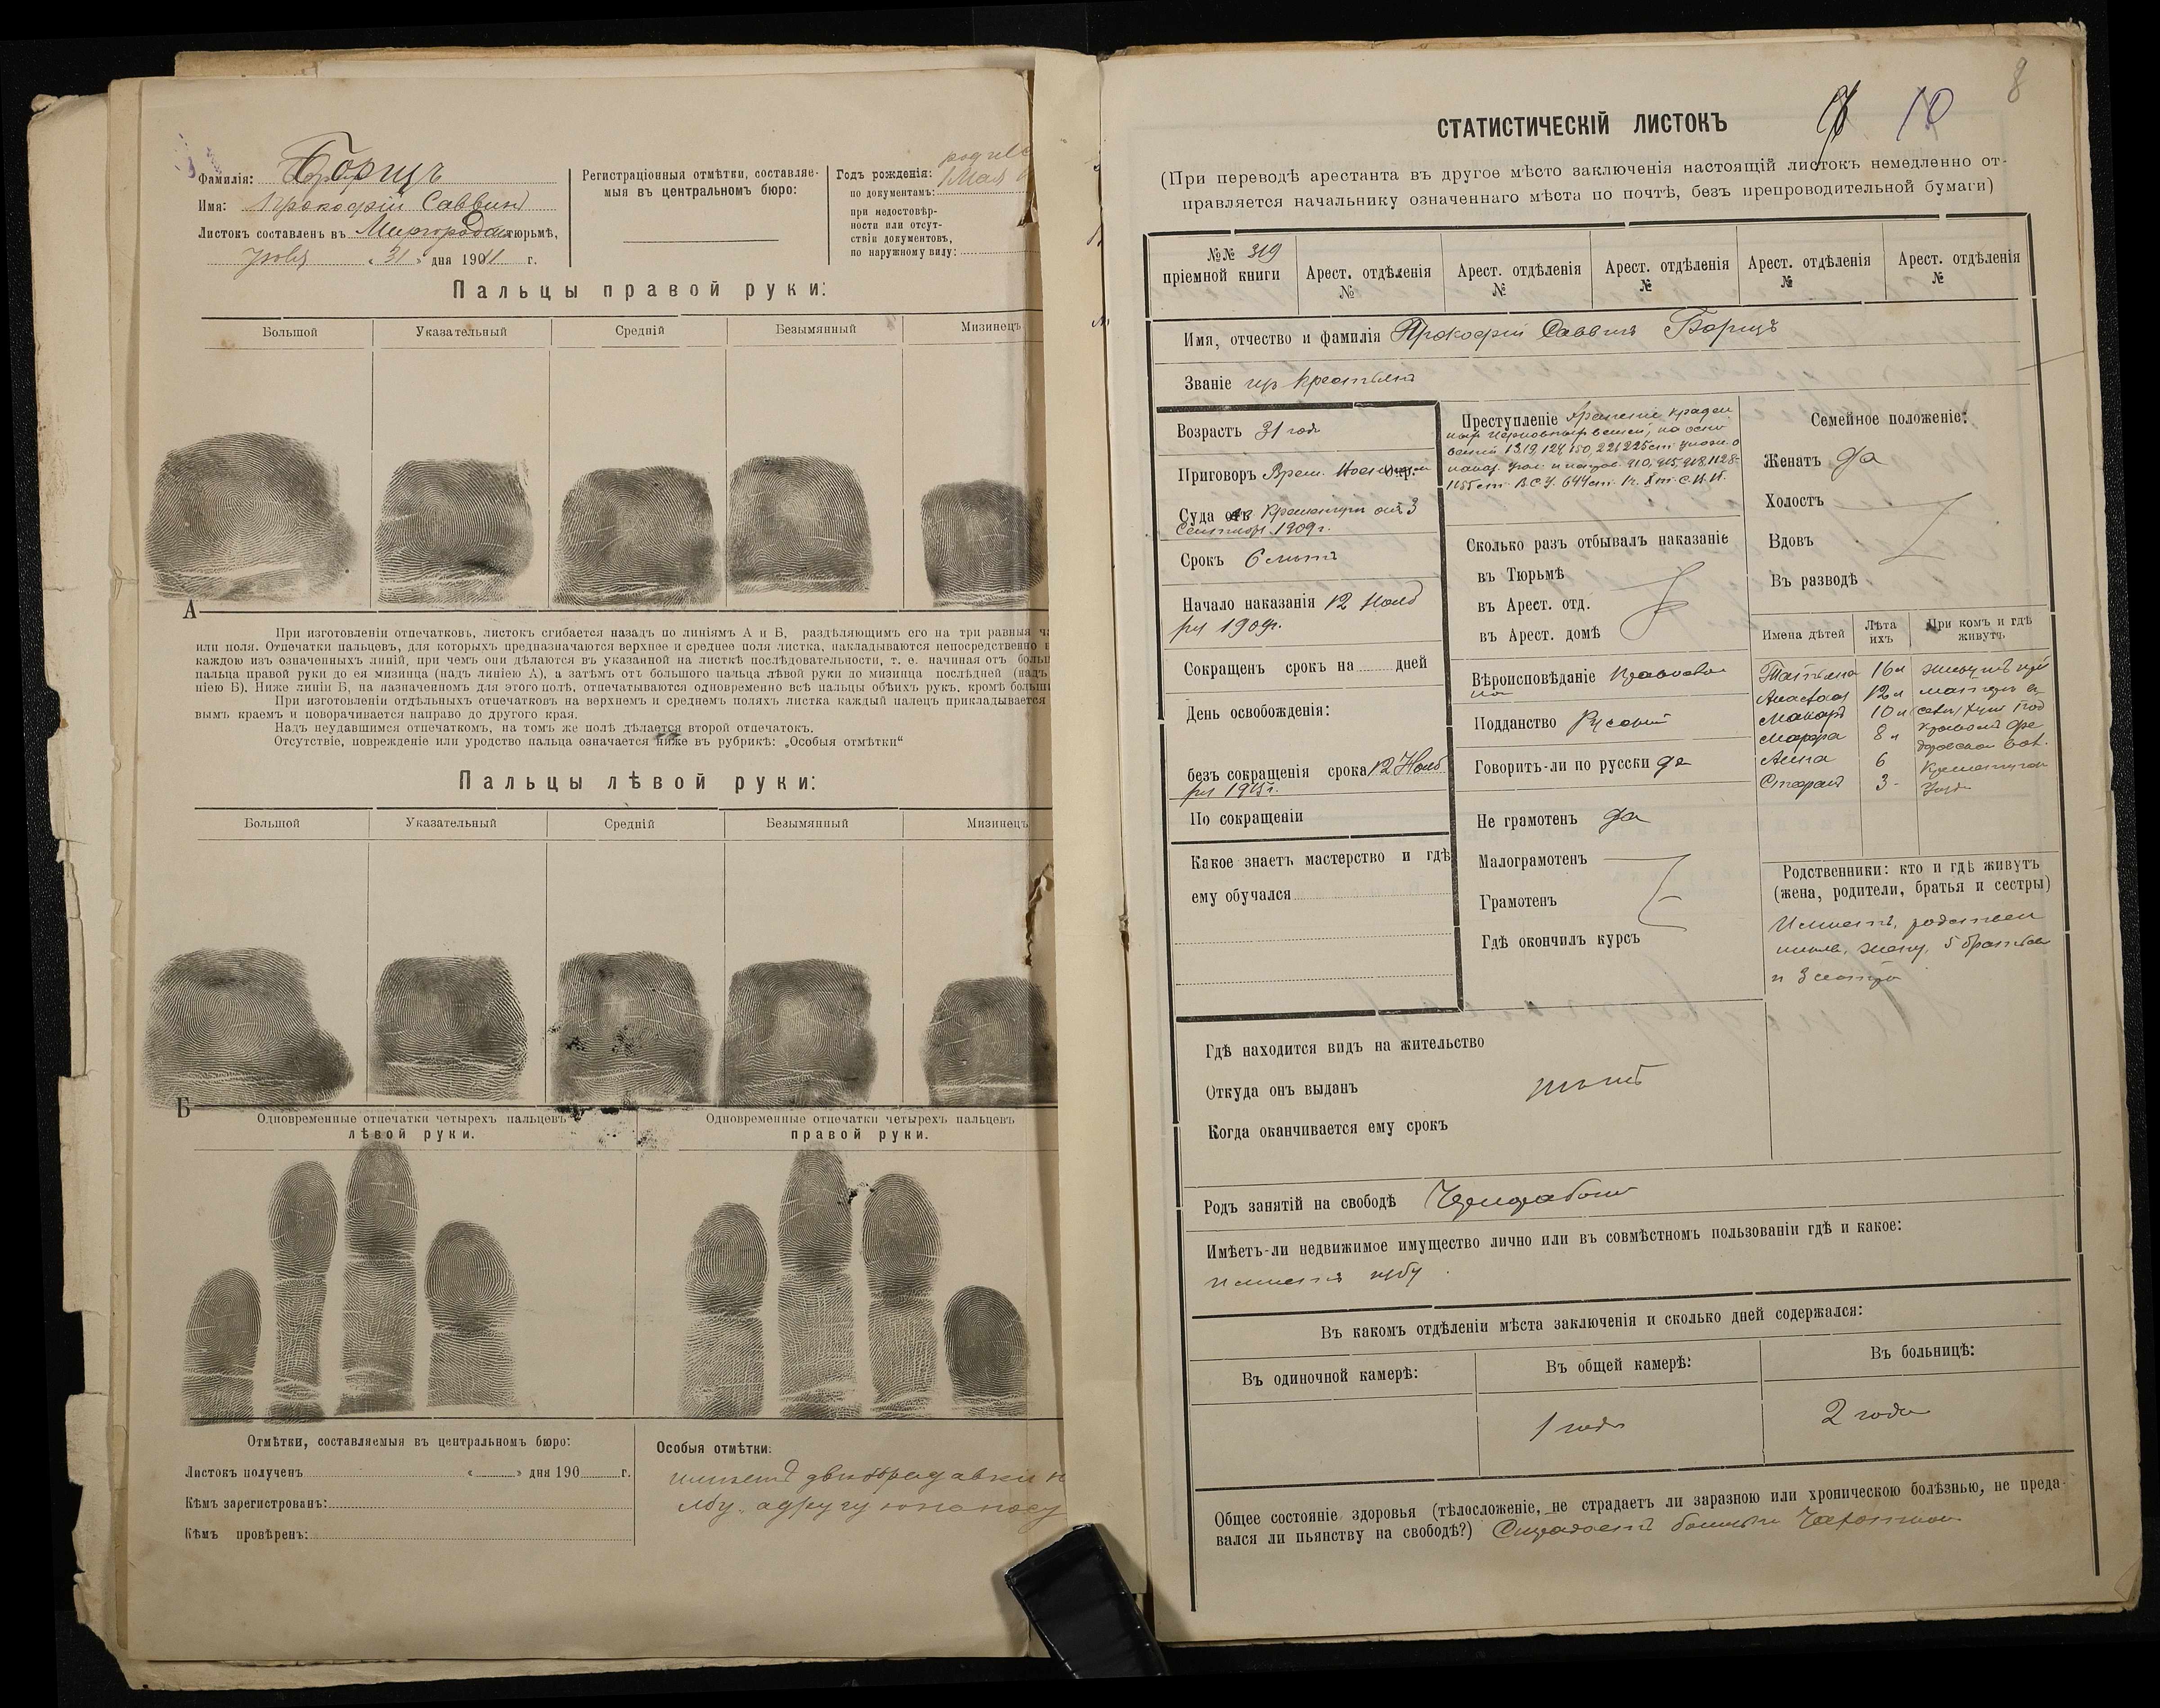 Фамилія: Борицъ
Имя: Прокофій Саввинъ
Листокъ составленъ въ Миргородск. тюрьмѣ,
« 31 » дня 1911 г.
Регистраціонныя отмѣтки, составляе-
мыя въ центральномъ бюро:
Годъ рожденія:
по документамъ: Мая
при недостовѣр-
ности или отсут-
ствіи документовъ,
по наружному виду:
Пальцы правой руки:
Большой Указательный Средній Безымянный Мизинецъ
А
При изготовленіи отпечатковъ, листокъ сгибается назадъ по линіямъ А и Б, раздѣляющимъ его на три равныя
или поля. Отпечатки пальцевъ, для которыхъ предназначаются верхнее и среднее поля листка, накладываются непосредственно
каждою изъ означенныхъ линій, при чемъ они дѣлаются въ указанной на листкѣ послѣдовательности, т. е. начиная отъ
пальца правой руки до ея мизинца (надъ линіею А), а затѣмъ отъ большого пальца лѣвой руки до мизинца послѣдней (надъ
ніею Б). Ниже линіи Б, на назначенномъ для этого полѣ, отпечатываются одновременно всѣ пальцы обѣихъ рукъ, кромѣ
При изготовленіи отдѣльныхъ отпечатковъ на верхнемъ и среднемъ поляхъ листка каждый палецъ прикладывается
вымъ краемъ и поворачивается направо до другого края.
Надъ неудавшимся отпечаткомъ, на томъ же полѣ дѣлается второй отпечатокъ.
Отсутствіе, поврежденіе или уродство пальца означается ниже въ рубрикѣ: „Особыя отмѣтки“
Пальцы лѣвой руки:
Большой Указательный Средній Безымянный Мизинецъ
Б
Одновременные отпечатки четырехъ пальцевъ
лѣвой руки.
Одновременные отпечатки четырехъ пальцевъ
правой руки.
Отмѣтки, составляемыя въ центральномъ бюро:
Листокъ полученъ « » дня 190 г.
Кѣмъ зарегистрованъ:
Кѣмъ провѣренъ:
Особыя отмѣтки:
имѣетъ двѣ бородавки
лбу, а другую на носу
8
10
СТАТИСТИЧЕСКІЙ ЛИСТОКЪ
(При переводѣ арестанта въ другое мѣсто заключенія настоящій листокъ немедленно от-
правляется начальнику означеннаго мѣста по почтѣ, безъ препроводительной бумаги)
№№ 319
пріемной книги
Арест. отдѣленія
№
Арест. отдѣленія
№
Арест. отдѣленія
№
Арест. отдѣленія
№
Арест. отдѣленія
№
Имя, отчество и фамилія Прокофій Саввинъ Борицъ
Званіе изъ крестьянъ
Возрастъ 31 годъ
Приговоръ Врем. Военно Окр.
Суда въ Кременчугѣ отъ 3
Сентября 1909 г.
Срокъ 6 лѣтъ
Начало наказанія 12 Нояб
ря 1909г.
Сокращенъ срокъ на дней
День освобожденія:
безъ сокращенія срока 12 Нояб
ря 1915г.
По сокращеніи
Какое знаетъ мастерство и гдѣ
ему обучался
Преступленіе храненіе краден
Сколько разъ отбывалъ наказаніе
въ Тюрьмѣ
въ Арест. отд.
въ Арест. домѣ
Вѣроисповѣданіе Православ
на
Подданство Русскій
Говоритъ-ли по русски да
Не грамотенъ да
Малограмотенъ
Грамотенъ
Гдѣ окончилъ курсъ
Семейное положеніе:
Женатъ да
Холостъ
Вдовъ
Въ разводѣ
Имена дѣтей Лѣта ихъ При комъ и гдѣ живутъ
Татьяна 16 л живутъ при
Анастас 12 л матери въ
Макаръ 10 л
Марфа 8 л
Анна 6 Кременчугск
Стефанъ 3 Уѣзда
Родственники: кто и гдѣ живутъ
(жена, родители, братья и сестры)
Имѣетъ, родствен
никовъ, жену, 5 братьев
и 3 сестры
Гдѣ находится видъ на жительство
Откуда онъ выданъ
Когда оканчивается ему срокъ
нѣтъ
Родъ занятій на свободѣ Чернорабочій
Имѣетъ-ли недвижимое имущество лично или въ совмѣстномъ пользованіи гдѣ и какое:
имѣетъ избу
Въ какомъ отдѣленіи мѣста заключенія и сколько дней содержался:
Въ одиночной камерѣ: Въ общей камерѣ: Въ больницѣ:
1 годъ 2 года
Общее состояніе здоровья (тѣлосложеніе, не страдаетъ ли заразною или хроническою болѣзнью, не преда-
вался ли пьянству на свободѣ?) Страдаетъ болѣзнью Чахоткой